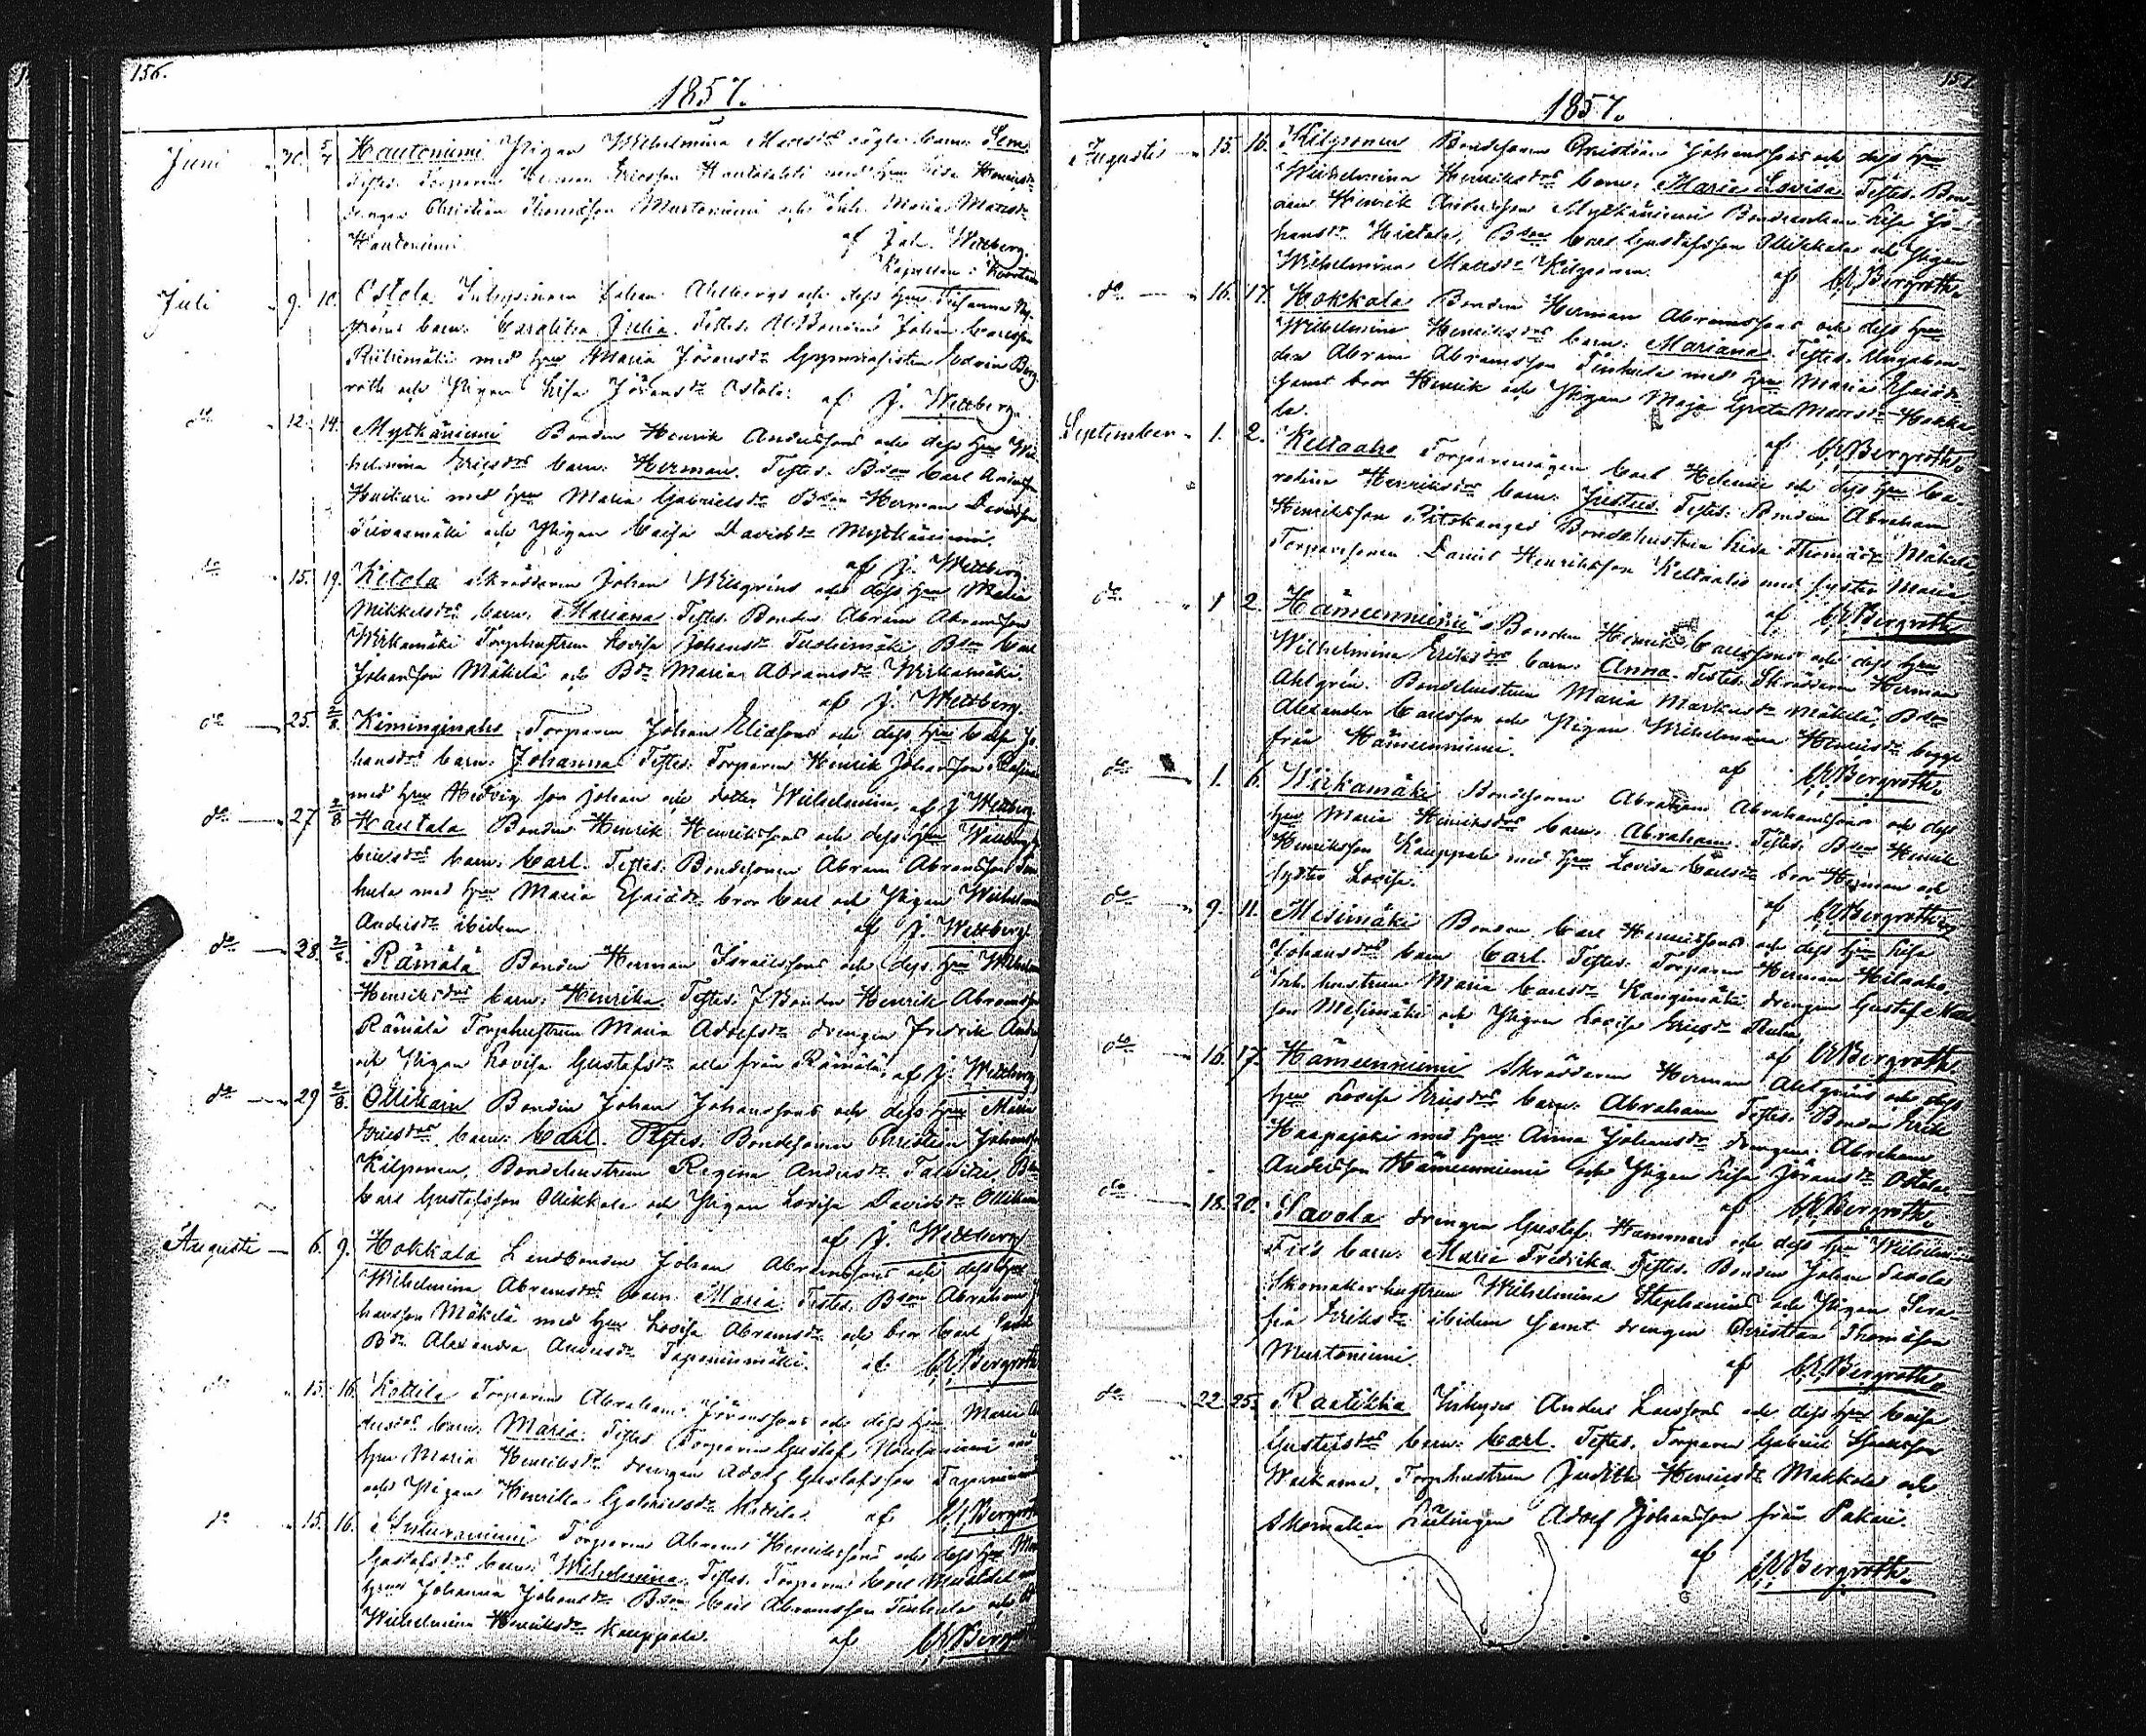 156.
1857.
Juni 30. 5/7 Hautoniemi Pigan Wilhelmina Matsdrs oägta barn:
Testes. Torparen Herman Ericsson med hu Lisa Henricsdr
drengen Christian Thomasson Murtoniemi och Maria Matsdr
Hautoniemi. af Joh. Wettberg.
Kapellan i
Juli 9. 10. Ostola Johan Ahlbergs och dess hu Susanna
barn: Carolina Julia. Testes. Bonden Johan Carlsson
Riihimäki med hu Maria Jöransdr Gymnasisten Edvin Berg-
roth och Pigan Lisa Jöransdr Ostola. af J. Wettberg.
do 12. 14. Mytkäniemi Bonden Henrik Anderssons och dess hu Wil-
helmina Ericsdrs barn: Herman. Testes. Bson Carl Andersson
Huikuri med hu Maria Gabrielsdr Bson Herman Davidsson
och Pigan Caisa Davidsdr Mytkäniemi.
af J. Wettberg.
do 15. 19. Ketola Skräddaren Johan Wilsgréns och dess hu Maria
Mikkelsdrs barn: Mariana. Testes. Bonden Abram Abramsson
Wirkamäki Torphustrun Lovisa Johansdr Bson Carl
Johansson Mäkelä och Bdr Maria Abramsdr Wirkamäki.
af J. Wettberg.
do 25. 2/8. Kiminginaho Torparen Johan Eliassons och dess hu Caisa Jo-
hansdrs barn: Johanna. Testes. Torparen Henrik Johansson
med hu Hedvig son Johan och dotter Wilhelmina, af J. Wettberg.
do 27 2/8 Hautala Bonden Henrik Henrikssons och dess hu
Ericsdrs barn: Carl. Testes. Bondesonen Abram Abramsson Tin-
kula med hu Maria Esaiædr bror Carl och Pigan Wilhelmina
Andersdr ibidem af J. Wettberg.
do 28. Rämälä Bonden Herman Israelssons och dess hu Wilhelmina
Henriksdrs barn: Henrika. Testes. Bonden Henrik Abramsson
Rämälä Torphustrun Maria Adolfsdr drengen Fredrik
och Pigan Lovisa Gustafsdr alla från Rämälä, af J. Wettberg
do 29 2/8. Ollikain Bonden Johan Johanssons och dess hu Maria
Ericsdrs barn: Carl. Testes. Bondesonen Christian Johansson
Kilponen, Bondehustrun Regina Andersdr Bson
Carl Gustafsson Ollikkala och Pigan Lovisa Davidsdr Ollikain
af J. Wettberg
Augusti 6. 9. Hokkala Landbonden Johan Abramssons och dess hu
Wilhelmina Abramsdrs barn: Maria. Testes. Bson Abraham Jo-
hansson Mäkelä med hu Lovisa Abramsdr och bror Carl samt
Bdr Alexandra Andersdr Taponinmäki. af C.E. Bergroth
do 15. 16. Kottila Torparen Abraham Jöranssons och dess hu Maria
barn: Maria. Testes. Torparen Gustaf med
hu Maria Henriksdr drengen Adolf Gustafsson
och Pigan Henrika Gabrielsdr Kottila. af C.E. Bergroth
do 15. 16. Torparen Abram Henrikssons och dess hu
Gustafsdrs barn: Wilhelmina. Testes. Torparen Carl
hu Johanna Johansdr Bson Carl Abramsson Tinkula och
Wilhelmina Henriksdr Kauppala. af C.E. Bergroth
157.
1857.
Augusti 15. 16. Kilponen Bondesonen Christian Johanssons och dess hu
Wilhelmina Henriksdrs barn: Maria Lovisa. Testes. Bon-
den Henrik Andersson Mytkäniemi Bondeenkan Lisa Jo-
hansdr Hautala, Bson Carl Gustafsson Ollikkala och Pigan
Wilhelmina Matsdr Kilponen. af C.E. Bergroth.
do 16. 17. Hokkala Bonden Herman Abramssons och dess hu
Wilhelmina Henriksdrs barn: Mariana. Testes. Unga bon-
den Abram Abramsson Tinkula med hu Maria Esaiædr
samt bror Henrik och Pigan Maja Greta Matsdr Hokka-
la. af C.E. Bergroth.
September 1. 2. Keltaaho Torparemågen Carl Helenii och dess hu Ca-
rolina Henriksdrs barn: Justus. Testes. Bonden Abraham
Henriksson Pitskangas Bondehustrun Lisa Thomædr Mäkelä,
Torparesonen Daniel Henriksson Keltaaho med syster Maria.
af C.E. Bergroth.
do 1 2. Hämeenniemi Bonden Henrik Carlssons och dess hu
Wilhelmina Eriksdrs barn: Anna. Testes. Skräddaren Herman
Ahlgrén. Bondehustrun Maria Markusdr Mäkelä, Bson
Alexander Carlsson och Pigan Wilhelmina Henricsdr begge
från Hämeenniemi. af C.E. Bergroth.
do 1. 6. Wirkamäki Bondesonen Abraham Abrahamssons och dess
hu Maria Henriksdrs barn: Abraham. Testes. Bson Henrik
Henriksson Kauppala med hu Lovisa Carlsdr bror Herman och
syster Lovisa. af C.E. Bergroth
do 9. 11. Mesimäki Bonden Carl Henrikssons och dess hu Lisa
Johansdrs barn Carl. Testes. Torparen Herman Hietaaho,
Inh. hustrun Maria Carlsdr Kangimäki drengen Gustaf
son Mesimäki och Pigan Lovisa Ericsdr
af C.E. Bergroth.
do 16. 17. Hämeenniemi Skräddaren Herman Ahlgréns och dess
hu Lovisa Ericsdrs barn: Abraham. Testes. Bonden Erik
Haapajoki med hu Anna Johansdr drengen Abraham
Andersson Hämeenniemi och Pigan Lisa Jöransdr Ostola.
af C.E. Bergroth.
do 18. 20. Savola drengen Gustaf Hammars och dess hu Wilhelmina
barn: Maria Fredrika. Testes. Bonden Johan Savola
Skomakar hustrun Wilhelmina Stephanius och Pigan Sera-
fia Eriksdr ibidem samt drengen Christian Thomasson
Murtoniemi. af C.E. Bergroth.
do 22. 25. Raatikka Inhyses Anders Larssons och dess hu Caisa
Gustafsdrs barn: Carl. Testes. Torparen Gabriel
Torphustrun Judith Henricsdr Makkola och
Skomakar Lärlingen Adolf Johansson från Pakari.
af C.E. Bergroth.